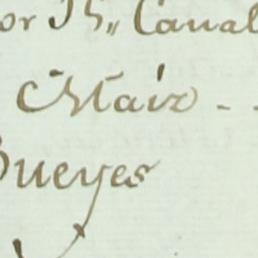 or Th,, Canal
Maiz - -
Bueyes